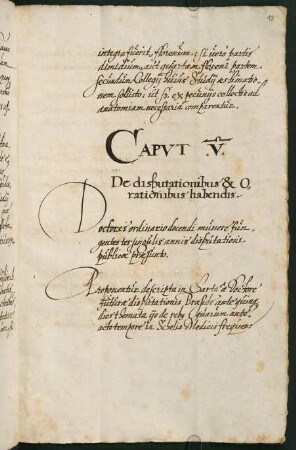 integra fuerit, florenum; si vero partis
dimidium, aut quartam floreni partem
secundum Collegij huius Studij estimatio-
nem collecto; ut ex pecunijs collectis ad
anatomiam necessaria comparentur.
CAPVT V.
De disputationibus & O,
rationibus habendis.
Doctores ordinario docendi munere fun,
gentes ter singulis annis disputationi
publicae praesunto.
Proponentur descripta in Carta a Doctore
futurae disputationis Praeside ante quinq
dies themata, ijs de rebus quarum ante
acto tempore in Scholis Medicis frequens